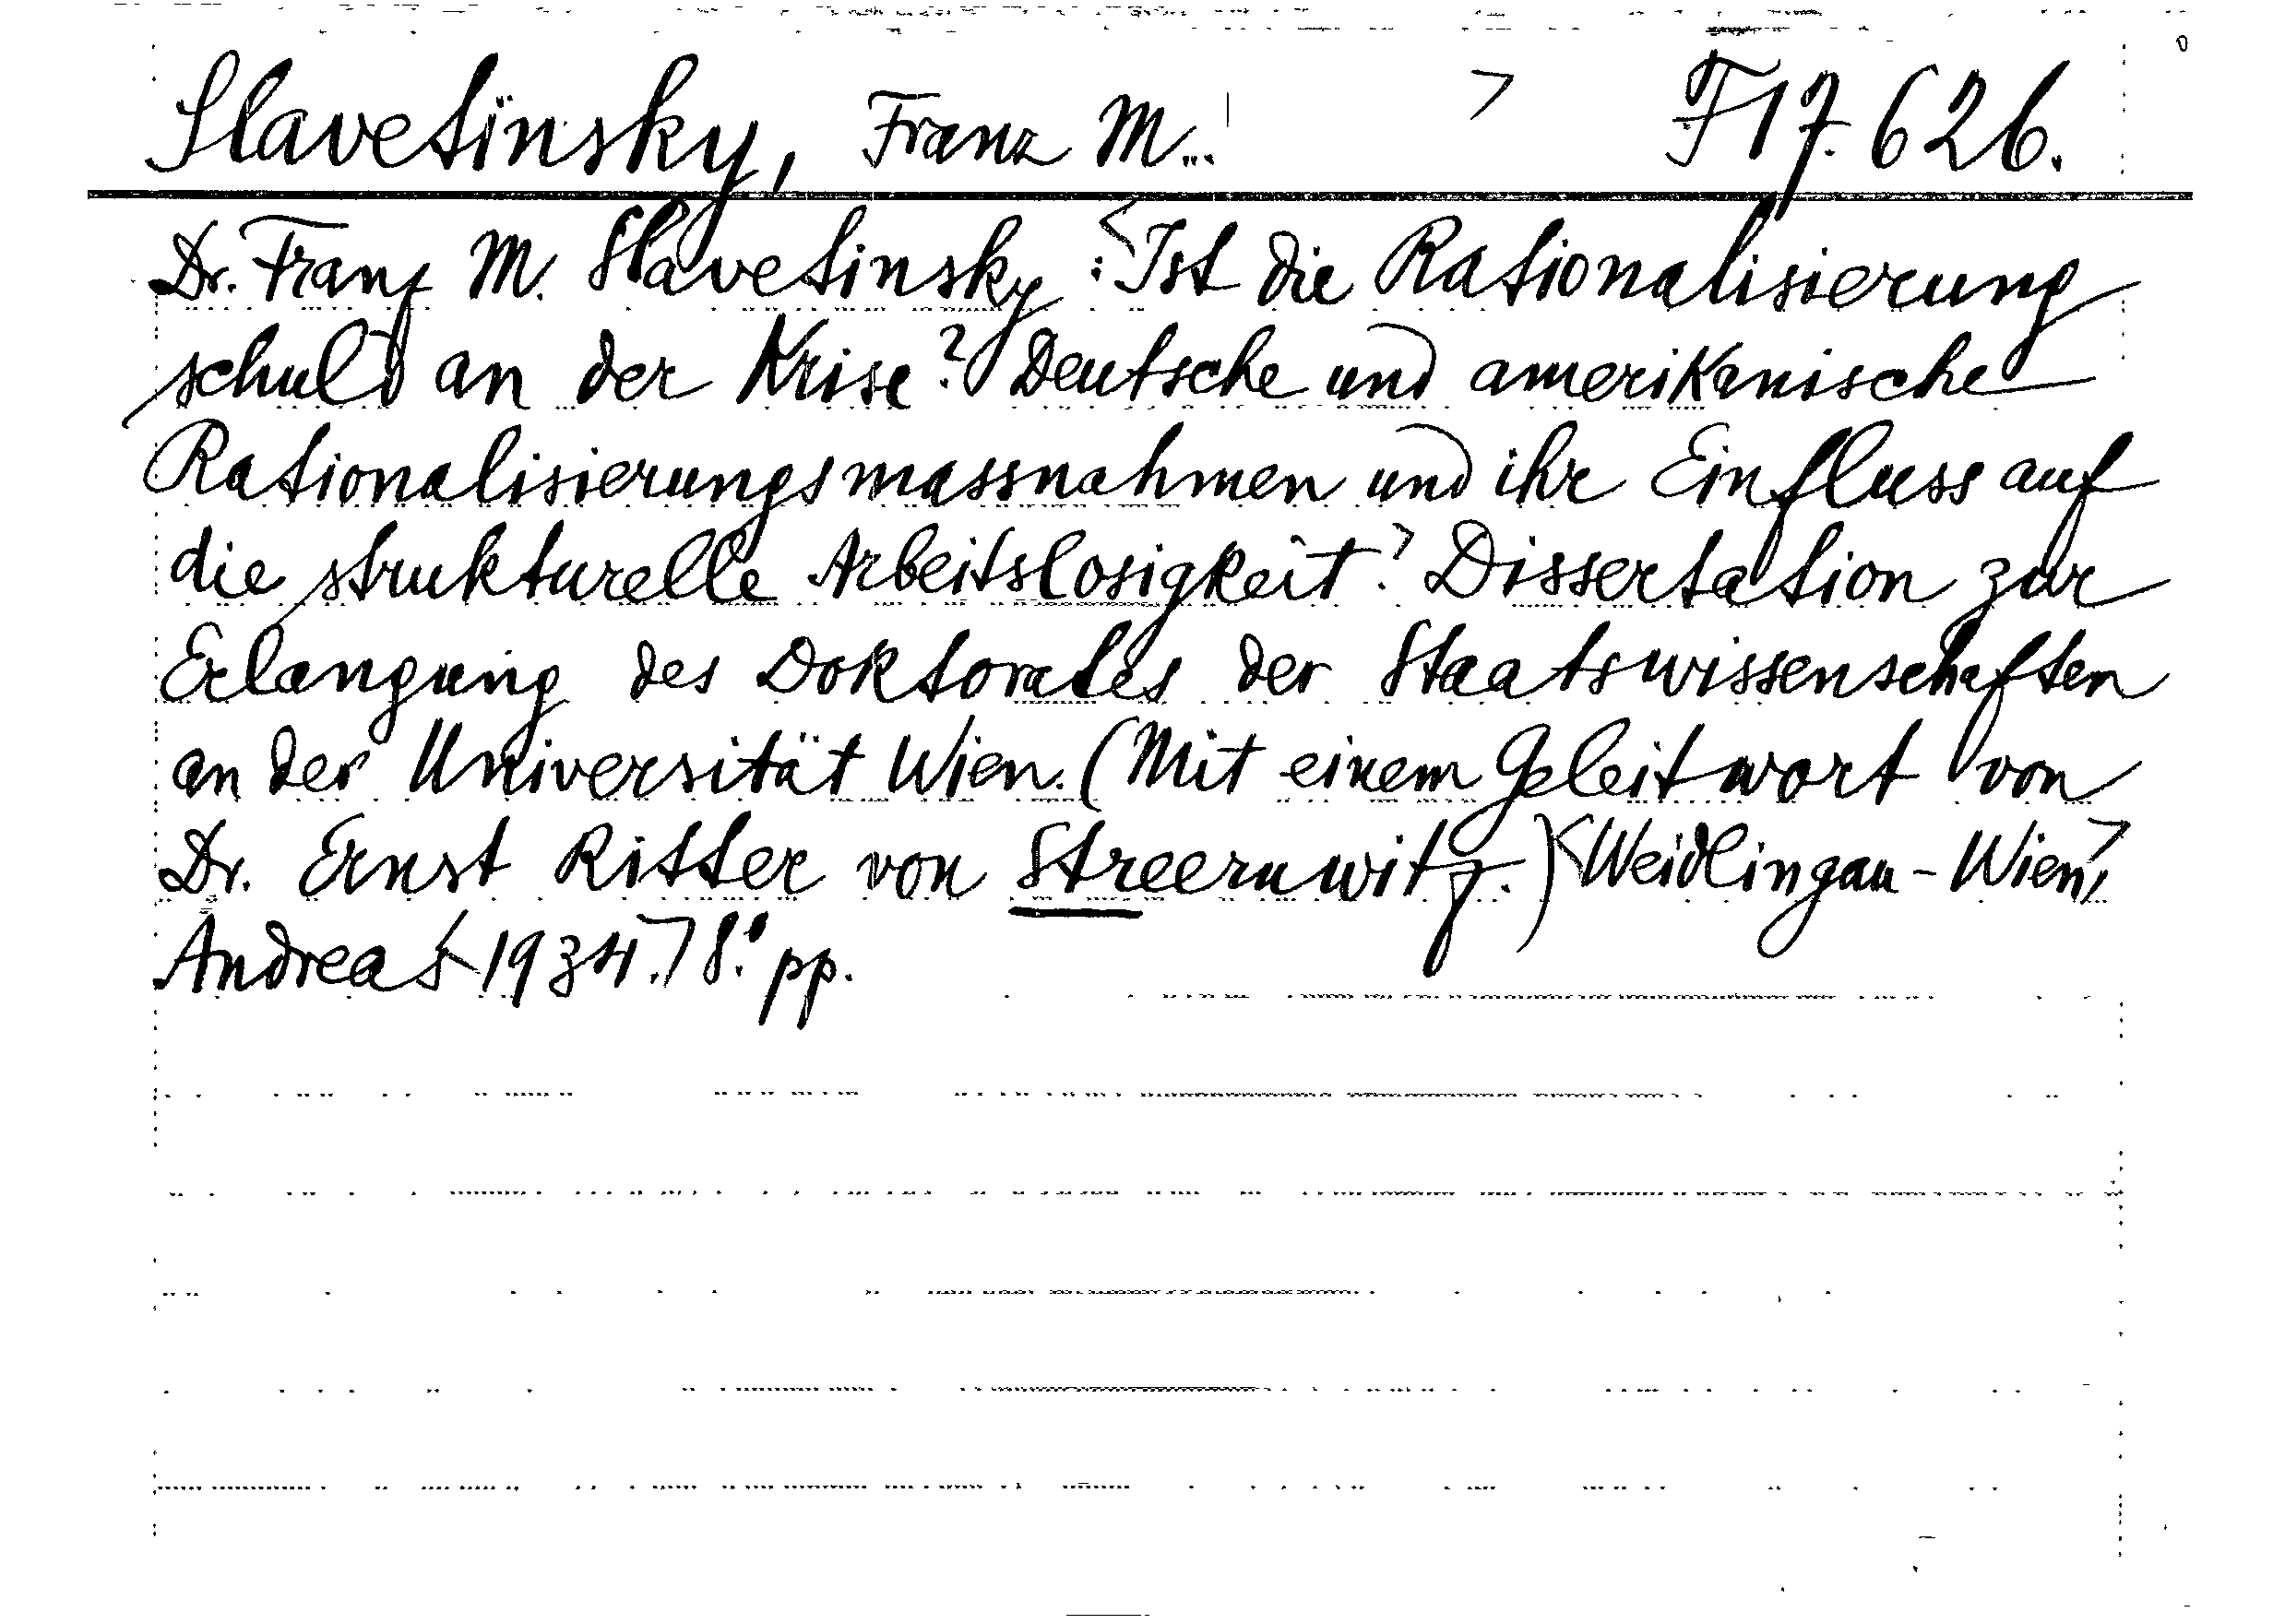 Slavetinsky, Franz M... F 17.626.
Dr. Franz M. Slavetinsky: Ist die Rationalisierung
schuld an der Krise? Deutsche und amerikanische
Rationalisierungsmassnahmen und ihr Einfluss auf
die strukturelle Arbeitslosigkeit? Dissertation zur
Erlangung des Doktorates der Staatswissenschaften
an der Universität Wien. (Mit einem Geleitwort von
Dr. Ernst Ritter von Streeruwitz.) Weidlingau-Wien,
Andreas 1934. 8° pp.